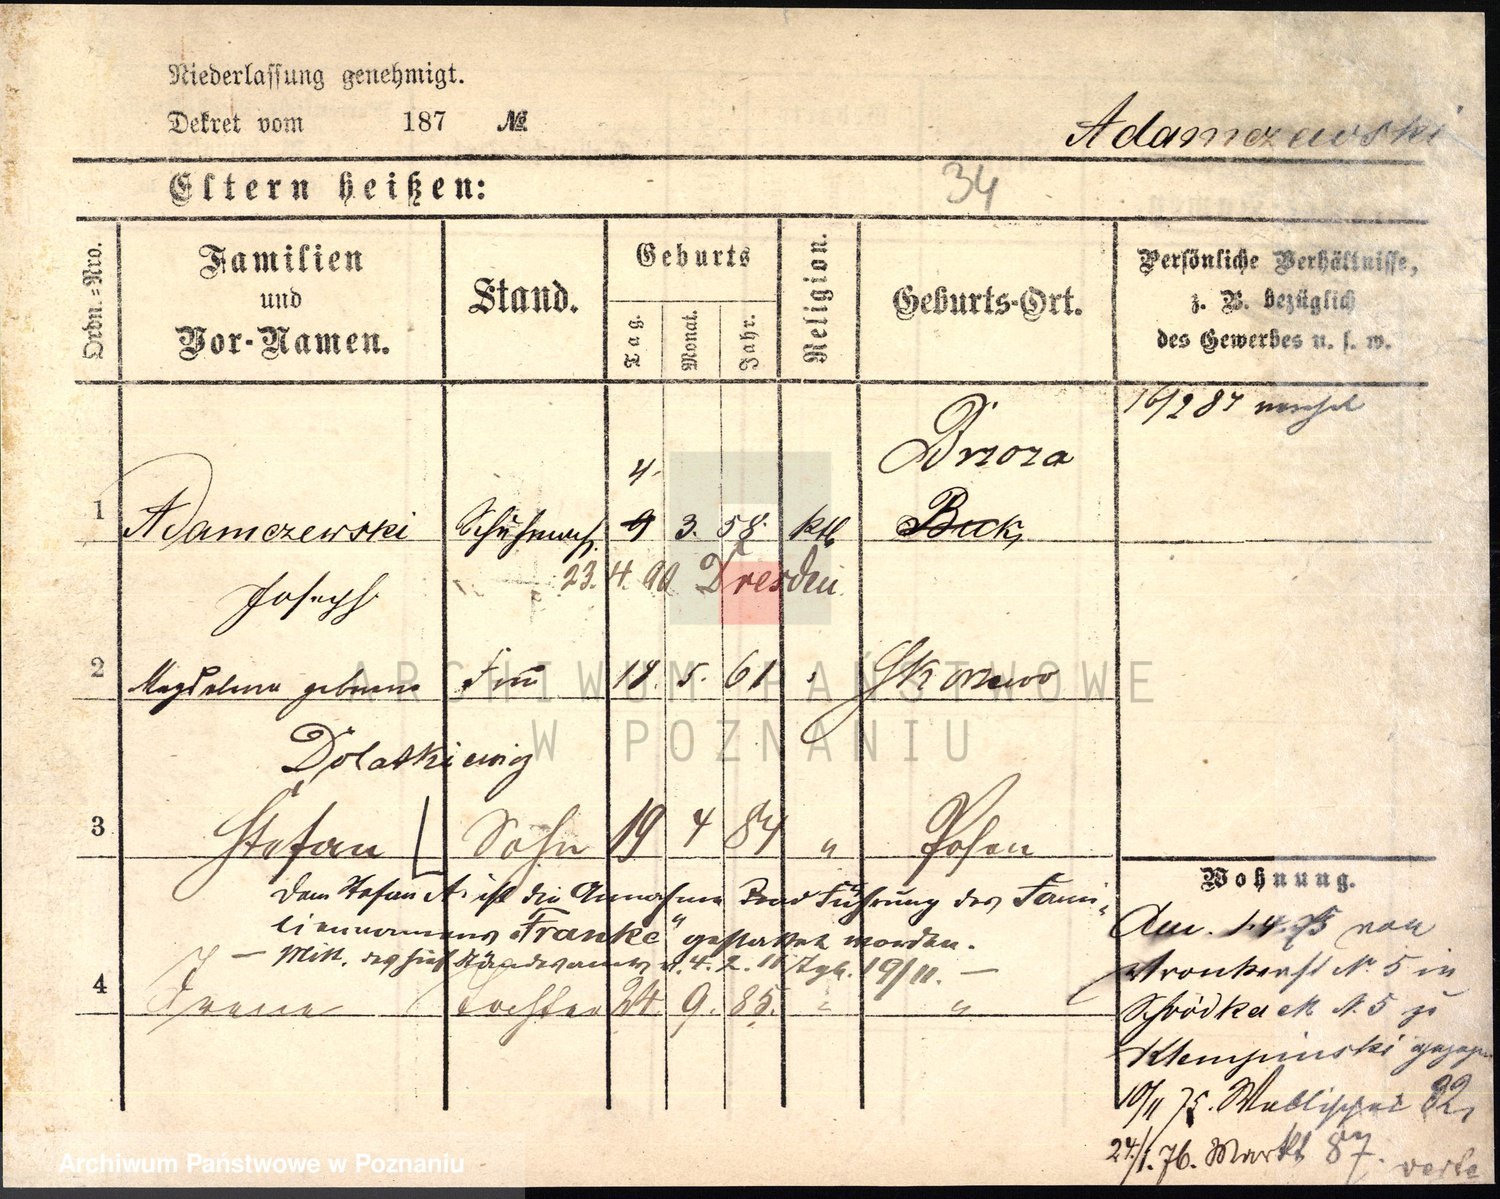 Niederlassung genehmigt.
Dekret vom 187 №
Adamczewski
Eltern heißen:
34
Ordn.=Nro.
Familien
und
Vor-Namen.
Stand.
Geburts
Tag.
Monat.
Jahr.
Religion.
Geburts-Ort.
Persönliche Verhältnisse,
z. B. bezüglich
des Gewerbes u. s. w.
16/2 87
Brzoza
4.
1 Adamczewski Schuhmach. 9 3. 58. kth Buk
23. 4. 90 Dresden
Joseph
2 Magdalena geborene Frau 18. 5. 61 Skorzewo
ARCHIWUM PAŃSTWOWE
W POZNANIU
Dolatkiewicz
3 Stefan Sohn 19 4 84 " Posen
Dem Stefan A. ist die Annahme und Führung des Fami-
liennamens „Franke" gestattet worden.
Mitt. des hies. Standesamts v. 4. 2. 11 19/11. —
4 Irena Tochter 24. 9. 85. " "
Wohnung.
Am 1.4.75 von
N. 5 in
Schrodka N. 5 zu
Klempinski
10/11 75. Wallischei 82,
24/1. 76. Markt 87.
verte
Archiwum Państwowe w Poznaniu